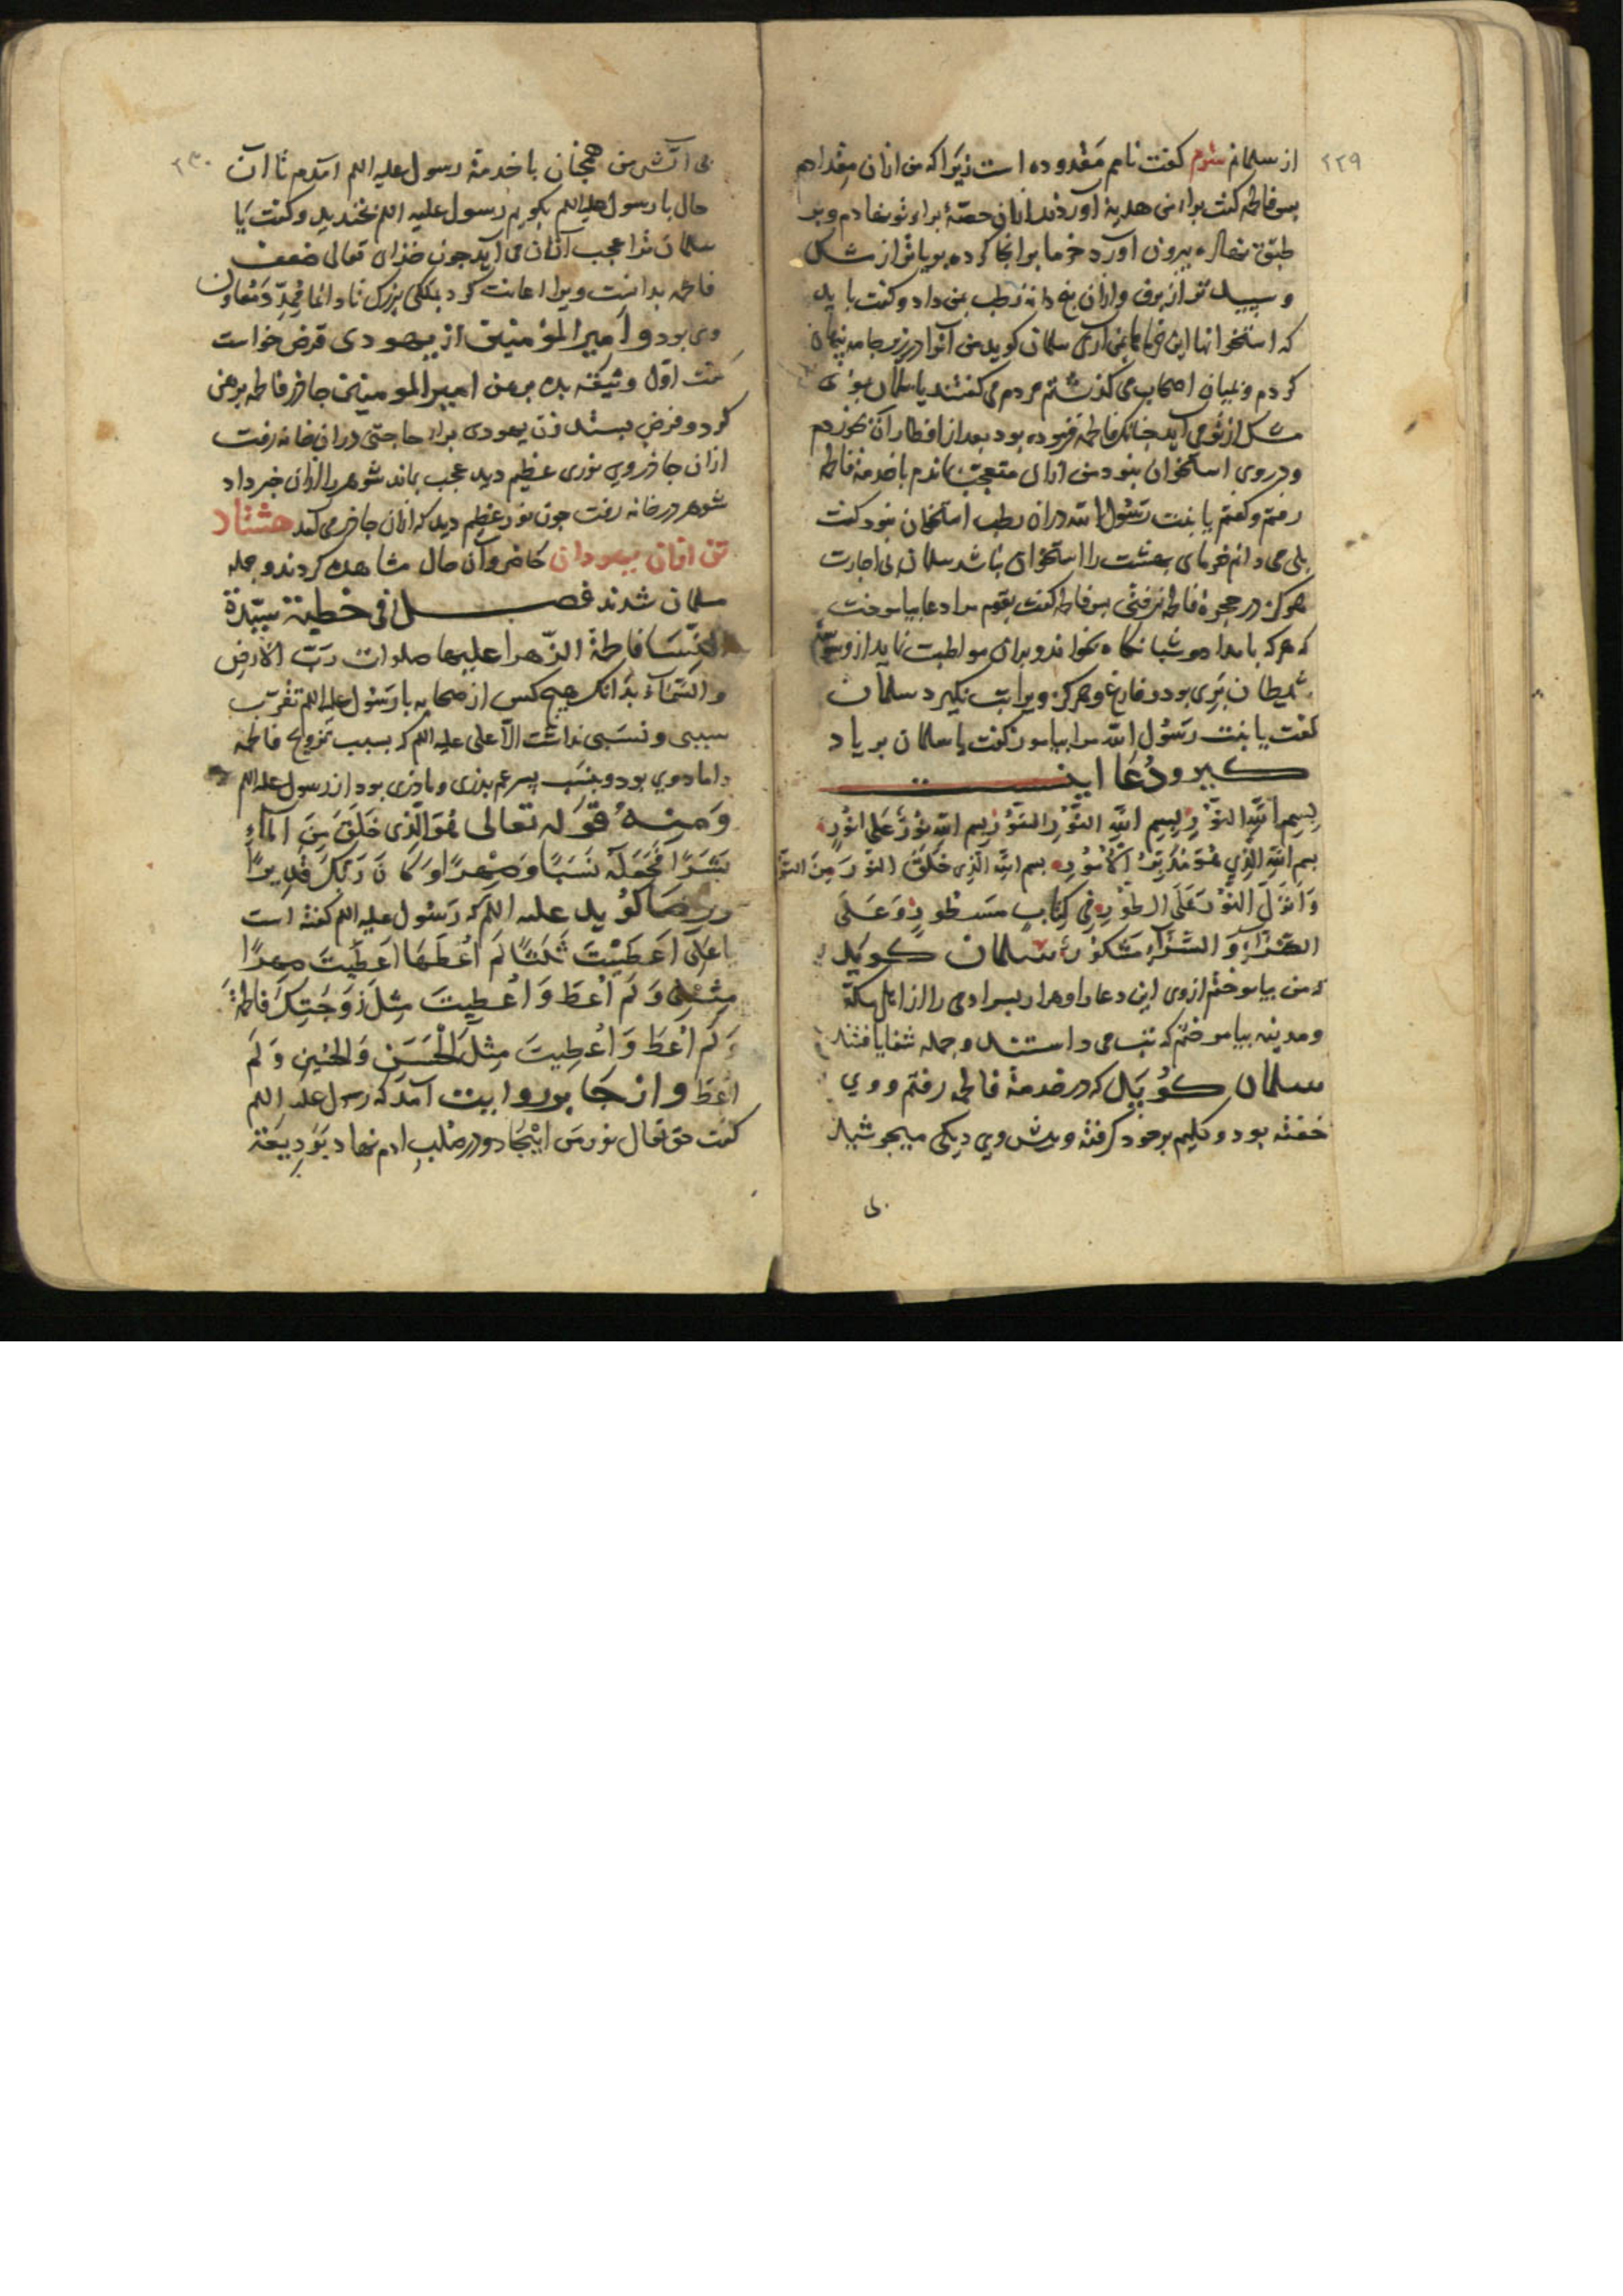 ۲۲۹
از سلمان سوم گفت نامم مقدوده است زیرا که من ازان مقدادم
پس فاطمه گفت برای من هدیه آوردند ازان حصهٔ برای تو نهادم و بر
طبق بیرون آورد خرما برانجا کرده بویاتر از مشک
و سپید تر از برف و ازان پنج دانه رطب بمن داد و گفت باید
که استخوانها این خرما بمن آری سلمان گوید من آنرا در زیر جامه پنهان
کردم و بمیان اصحاب می گذشتم مردم می گفتند یا سلمان بوی
مشک از تو می آید چنانک فاطمه فرموده بود بعد از افطار آن بخوردم
و در وی استخوان نبود من ازان متعجب بماندم با خدمة فاطمه
رفتم و گفتم یا بنت رسول الله دران رطب استخوان نبود گفت
بلی می دانم خرمای بهشت را استخوان نباشد سلمان بی اجازت
هرگز در حجرهٔ فاطمه نرفتی پس فاطمه گفت بقوم مرا دعا بیاموخت
که هر که بامداد و شبانگاه بخواند و بران مواظبت نماید از وسوسه
شیطان بری بود و فارغ و هرگز ویرا تب نگیرد سلمان
گفت یا بنت رسول الله مرا بیاموز گفت یا سلمان بر یاد
گیر و دعا اینست
بسم الله النور بسم الله النور النور بسم الله نور علی نور
بسم الله الذی هو مدبر الامور بسم الله الذی خلق النور من النور
و انزل النور علی الطور فی کتاب مسطور و علی
الضراء و السراء مشکور سلمان گوید
که من بیاموختم از وی این دعا را و هزار بیمرادی را از اهل مکة
و مدینه بیاموختم که تب می داشتند و جمله شفا یافتند
سلمان گوید که در خدمة فاطمه رفتم و وی
خفته بود و گلیم بر خود گرفته و پیش وی دیگی میجوشید
بی
۲۳۰
بی آتش من همچنان با خدمة رسول علیه السلم آمدم تا آن
حال با رسول علیه السلم بگویم رسول علیه السلم بخندید و گفت یا
سلمان ترا عجب ازان می آید چون خدای تعالی ضعف
فاطمه بدانست ویرا اعانت کرد بملکی بزرگ تا دائما ممد و معاون
وی بود و امیر المؤمنین از یهودی قرض خواست
گفت اول وثیقه بده برهن امیر المومنین چادر فاطمه برهن
کرد و قرض بستد زن یهودی برای حاجتی دران خانه رفت
ازان چادر وی نوری عظیم دید عجب بماند شوهر را ازان خبر داد
شوهر در خانه رفت چون نور عظیم دید که ازان چادر می آمد هشتاد
تن ازان یهودان کافر و آن حال مشاهده کردند و جمله
مسلمان شدند فصل فی خطبة سیدة
النسا فاطمة الزهرا علیها صلوات رب الارض
و السماء بدانک هیچ کس از صحابه با رسول علیه السلم تقرب
سببی و نسبی نداشت الا علی علیه السلم که بسبب تزویج فاطمه
داماد وی بود و بنسب پسر عم پدری و مادری بود از رسول علیه السلم
و منه قوله تعالی هو الذی خلق من الماء
بشرا فجعله نسبا و صهرا و کان ربک قدیرا
و رضا گوید علیه السلم که رسول علیه السلم گفته است
یا علی اعطیت ثلثا لم اعطها اعطیت صهرا
مثلی و لم اعط و اعطیت مثل زوجتک فاطمة
و لم اعط و اعطیت مثل الحسن و الحسین و لم
اعط و از جابر روایت آمد که رسول علیه السلم
گفت حق تعالی نور من ایجاد و در صلب ادم نهاد بودیعة